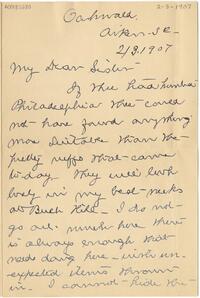 2-3-1907
Oakwald.
Aiken-S.C-
2/3.1907
My Dear Sister-
If thee had
Philadelphia thee could
not have found anything
more suitable than the
pretty ruffs that came
to day. They will look
lovely in my best necks
at Buck Hill- I do not
go out much here there
is always enough that
needs doing here- with un-
expected items thrown
in- I cannot hide the-